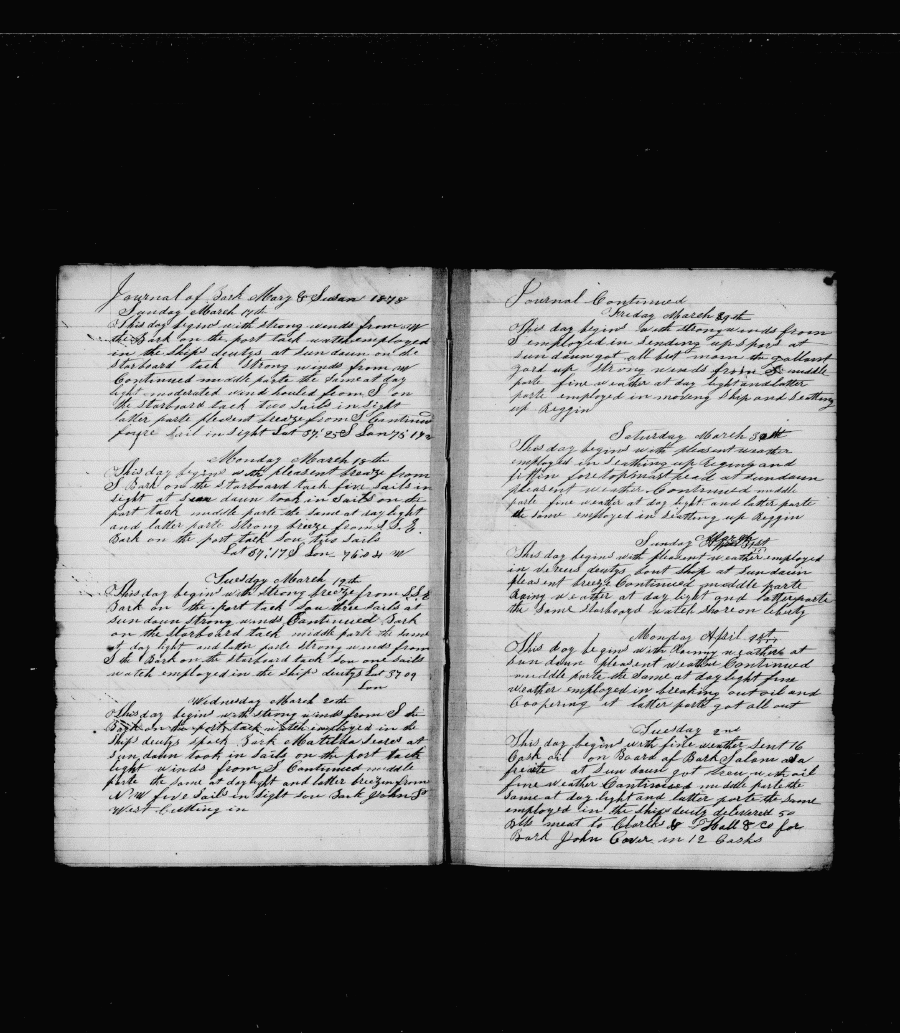 Journal of Bark Mary & Susan 1878
Sunday March 17th
This day begins with strong winds from SW
the Bark on the port tack watch employed
in the ships deutys at sun daun on the
starboard tack strong winds from W
Continued middle parte the same at day
light moderated wind hauled from S on
the starboard tack two sails in sight
latter parte plesent breaze from S Continued
foure sail in sight Lat 37'25 S Lon 75
Monday March 18th
This day begins with pleasent breaze from
S Bark on the starboard tack five sails in
sight at sun daun took in sails on the
port tack middle parte the same at day light
and latter parte strong breaze from S.S.E.
Bark on the port tack son two sails
Lat 37'17 S Lon 76 W
Tuesday March 19th
This day begin with strong breeze from S.S.E
Bark on the port tack son three sails at
sun daun strong winds Continued Bark
on the starboard tack middle parte the same
at day light and latter parte strong winds from
S the Bark on the starboard tack son one sails
watch employed in the ships deutys Lat 37 09
Lon
Wednesday March 20th
This day begin with strong winds from S the
Bark on the port tack watch employed in the
ships deutys spoch Bark Matilda Sears at
sun daun took in sails on the port tack
light winds from S Continued middle
parte the same at day light and latter breeze from
N W five sails in sight son Bark John P
West Cutting in
Journal Continued
Friday March 29th
This day begins with strong winds from
S employed in sending up spars at
sun daun got all but main to gallant
yard up strong winds from S middle
parte fine weather at day light and latter
parte employed in moving ship and seatting
up Riggin
Saturday March 30th
This day begin with pleasent weather
employed in seatting up Riging and
fittin foretopmast head at sundaun
pleasent weather Continued middle
parte fine weather at day light and latter parte
the same employed in seatting up Riggin
Sunday March 31st
This day begins with pleasent weather employed
in vereus deutys bout ship at sun daun
plesent breeze Continued middle parte
Raing weather at day light and latter parte
the same starboard watch shore on liberty
Monday April 1st
This day begin with Rainny weather at
sun daun pleasent weather Continued
middle parte the same at day light fine
weather employed in breaking out oil and
Coopering at latter parte got all out
Tuesday 2nd
This day begin with fine weather sent 16
Cask oil on Board of Bark Salome as a
fraite at sun daun got threu with oil
fine weather Continued middle parte the
same at day light and latter parte the same
employed in the ships deuty delivered 50
Bbls meat to Clarke & T Hall & Co for
Bark John Carver in 12 Casks